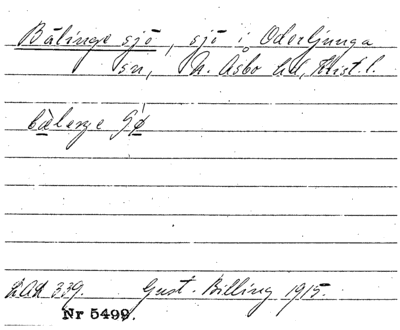 Bälinge sjö, sjö i Oderljunga
sn, N. Åsbo hd, Krist. l.
LAL 339. Gust. Billing 1915.
Nr 5499.